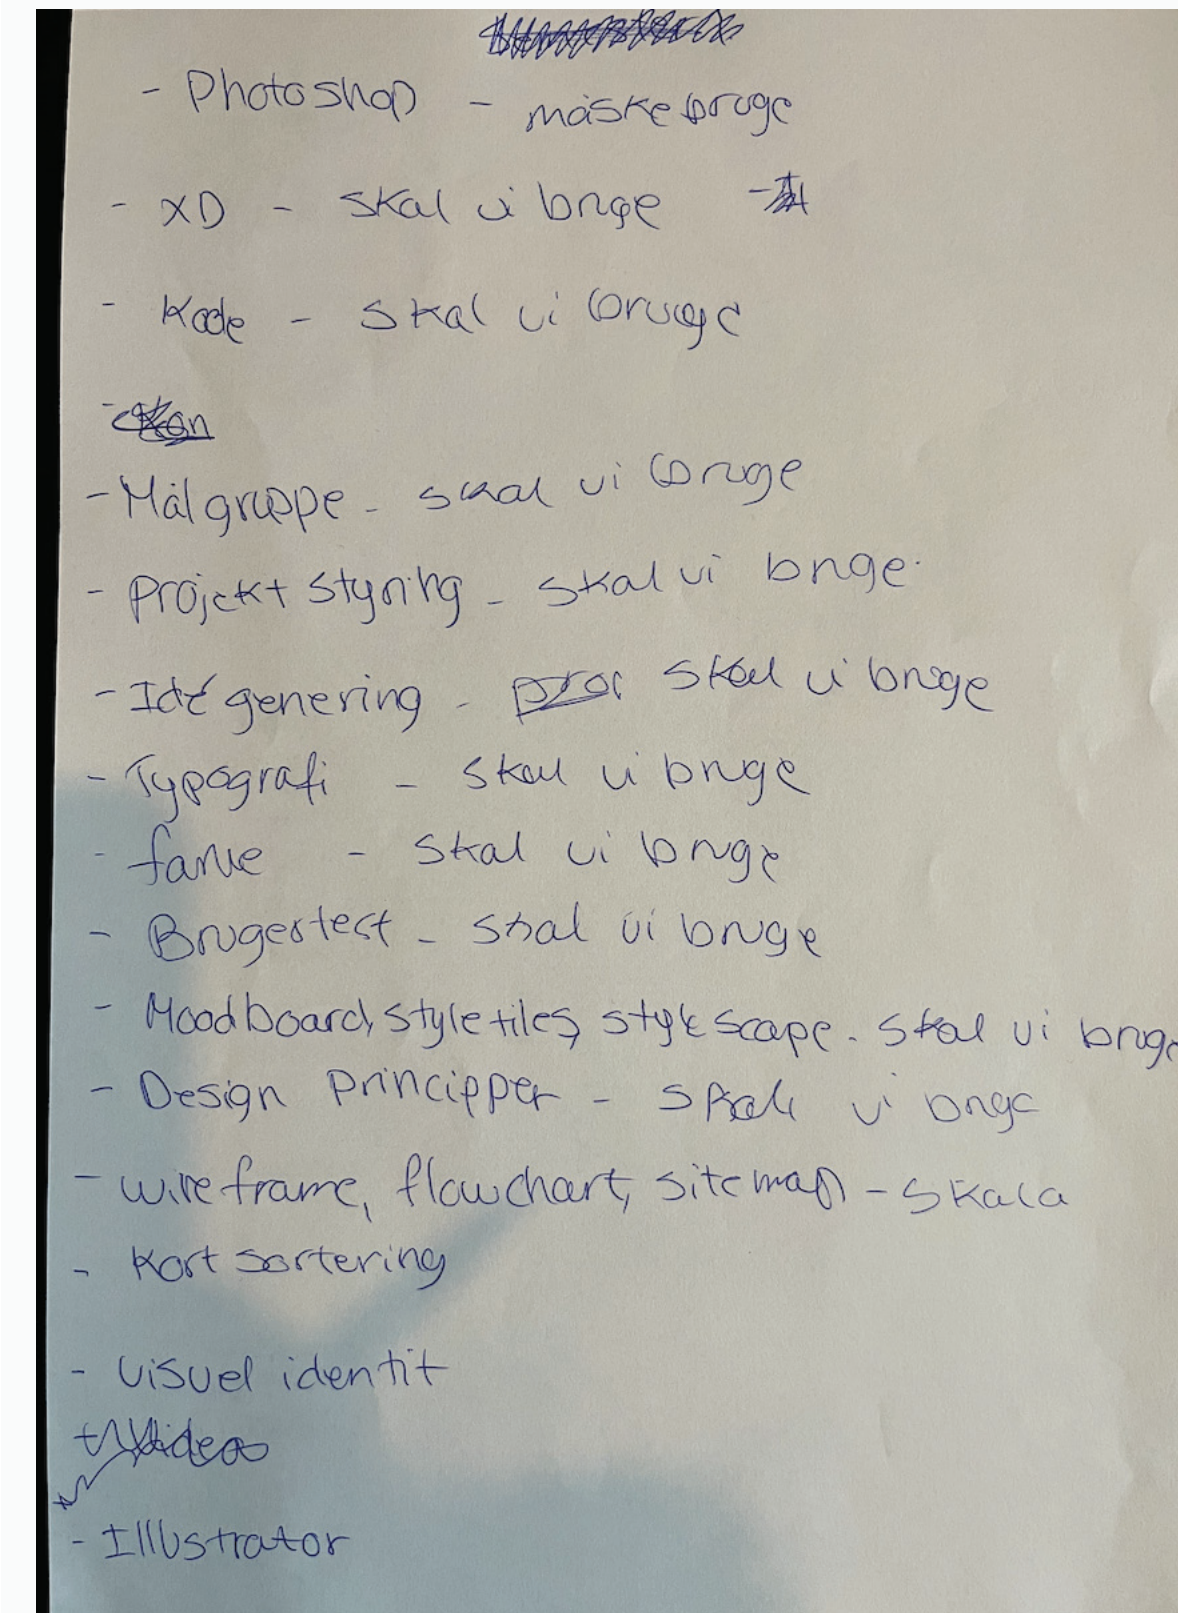 - Photoshop - måske bruge
- XD - skal vi bruge
- Kode - skal vi bruge
- Målgruppe - skal vi bruge
- Projekt styring - skal vi bruge.
- Idé genering - skal vi bruge
- Typografi - skal vi bruge
- farve - skal vi bruge
- Brugertest - skal vi bruge
- Moodboard, style tiles, style scape - skal vi bruge
- Design principper - skal vi bruge
- wireframe, flowchart, sitemap - skala
- Kort sortering
- visuel identit
- Illustrator